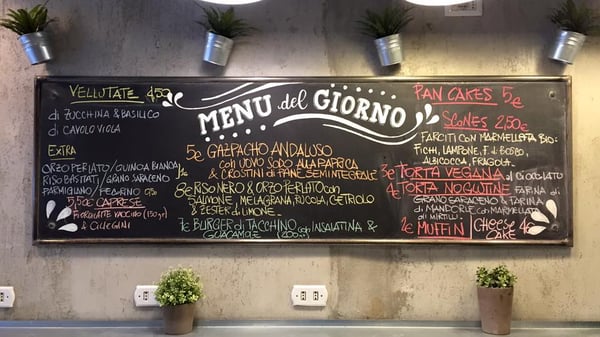 VELLUTATE 4,50
di ZUCCHINA & BASILICO
di CAVOLO VIOLA
EXTRA
ORZO PERLATO/QUINOA BIANCA/
RISO BASMATI/GRANO SARACENO
PARMIGIANO/PECORINO
5,50€ CAPRESE
FIORDILATTE VACCINO (150gr)
& CILIEGINI
MENU del GIORNO
5€ GAZPACHO ANDALUSO
con UOVO SODO ALLA PAPRICA
& CROSTINI di PANE SEMINTEGRALE
8€ RISO NERO & ORZO PERLATO con
SALMONE, MELAGRANA, RUCOLA, CETRIOLO
& ZESTER di LIMONE
7€ BURGER di TACCHINO (200gr) con INSALATINA &
GUACAMOLE
PAN CAKES 5€
SCONES 2,50€
FARCITI CON MARMELLATA BIO:
FICHI, LAMPONE, F. di BOSCO,
ALBICOCCA, FRAGOLA.
3€ TORTA VEGANA al CIOCCOLATO
4€ TORTA NOGLUTINE FARINA di
GRANO SARACENO & FARINA
di MANDORLE con MARMELLATA
di MIRTILLI.
2€ MUFFIN
CHEESE 4€
CAKE